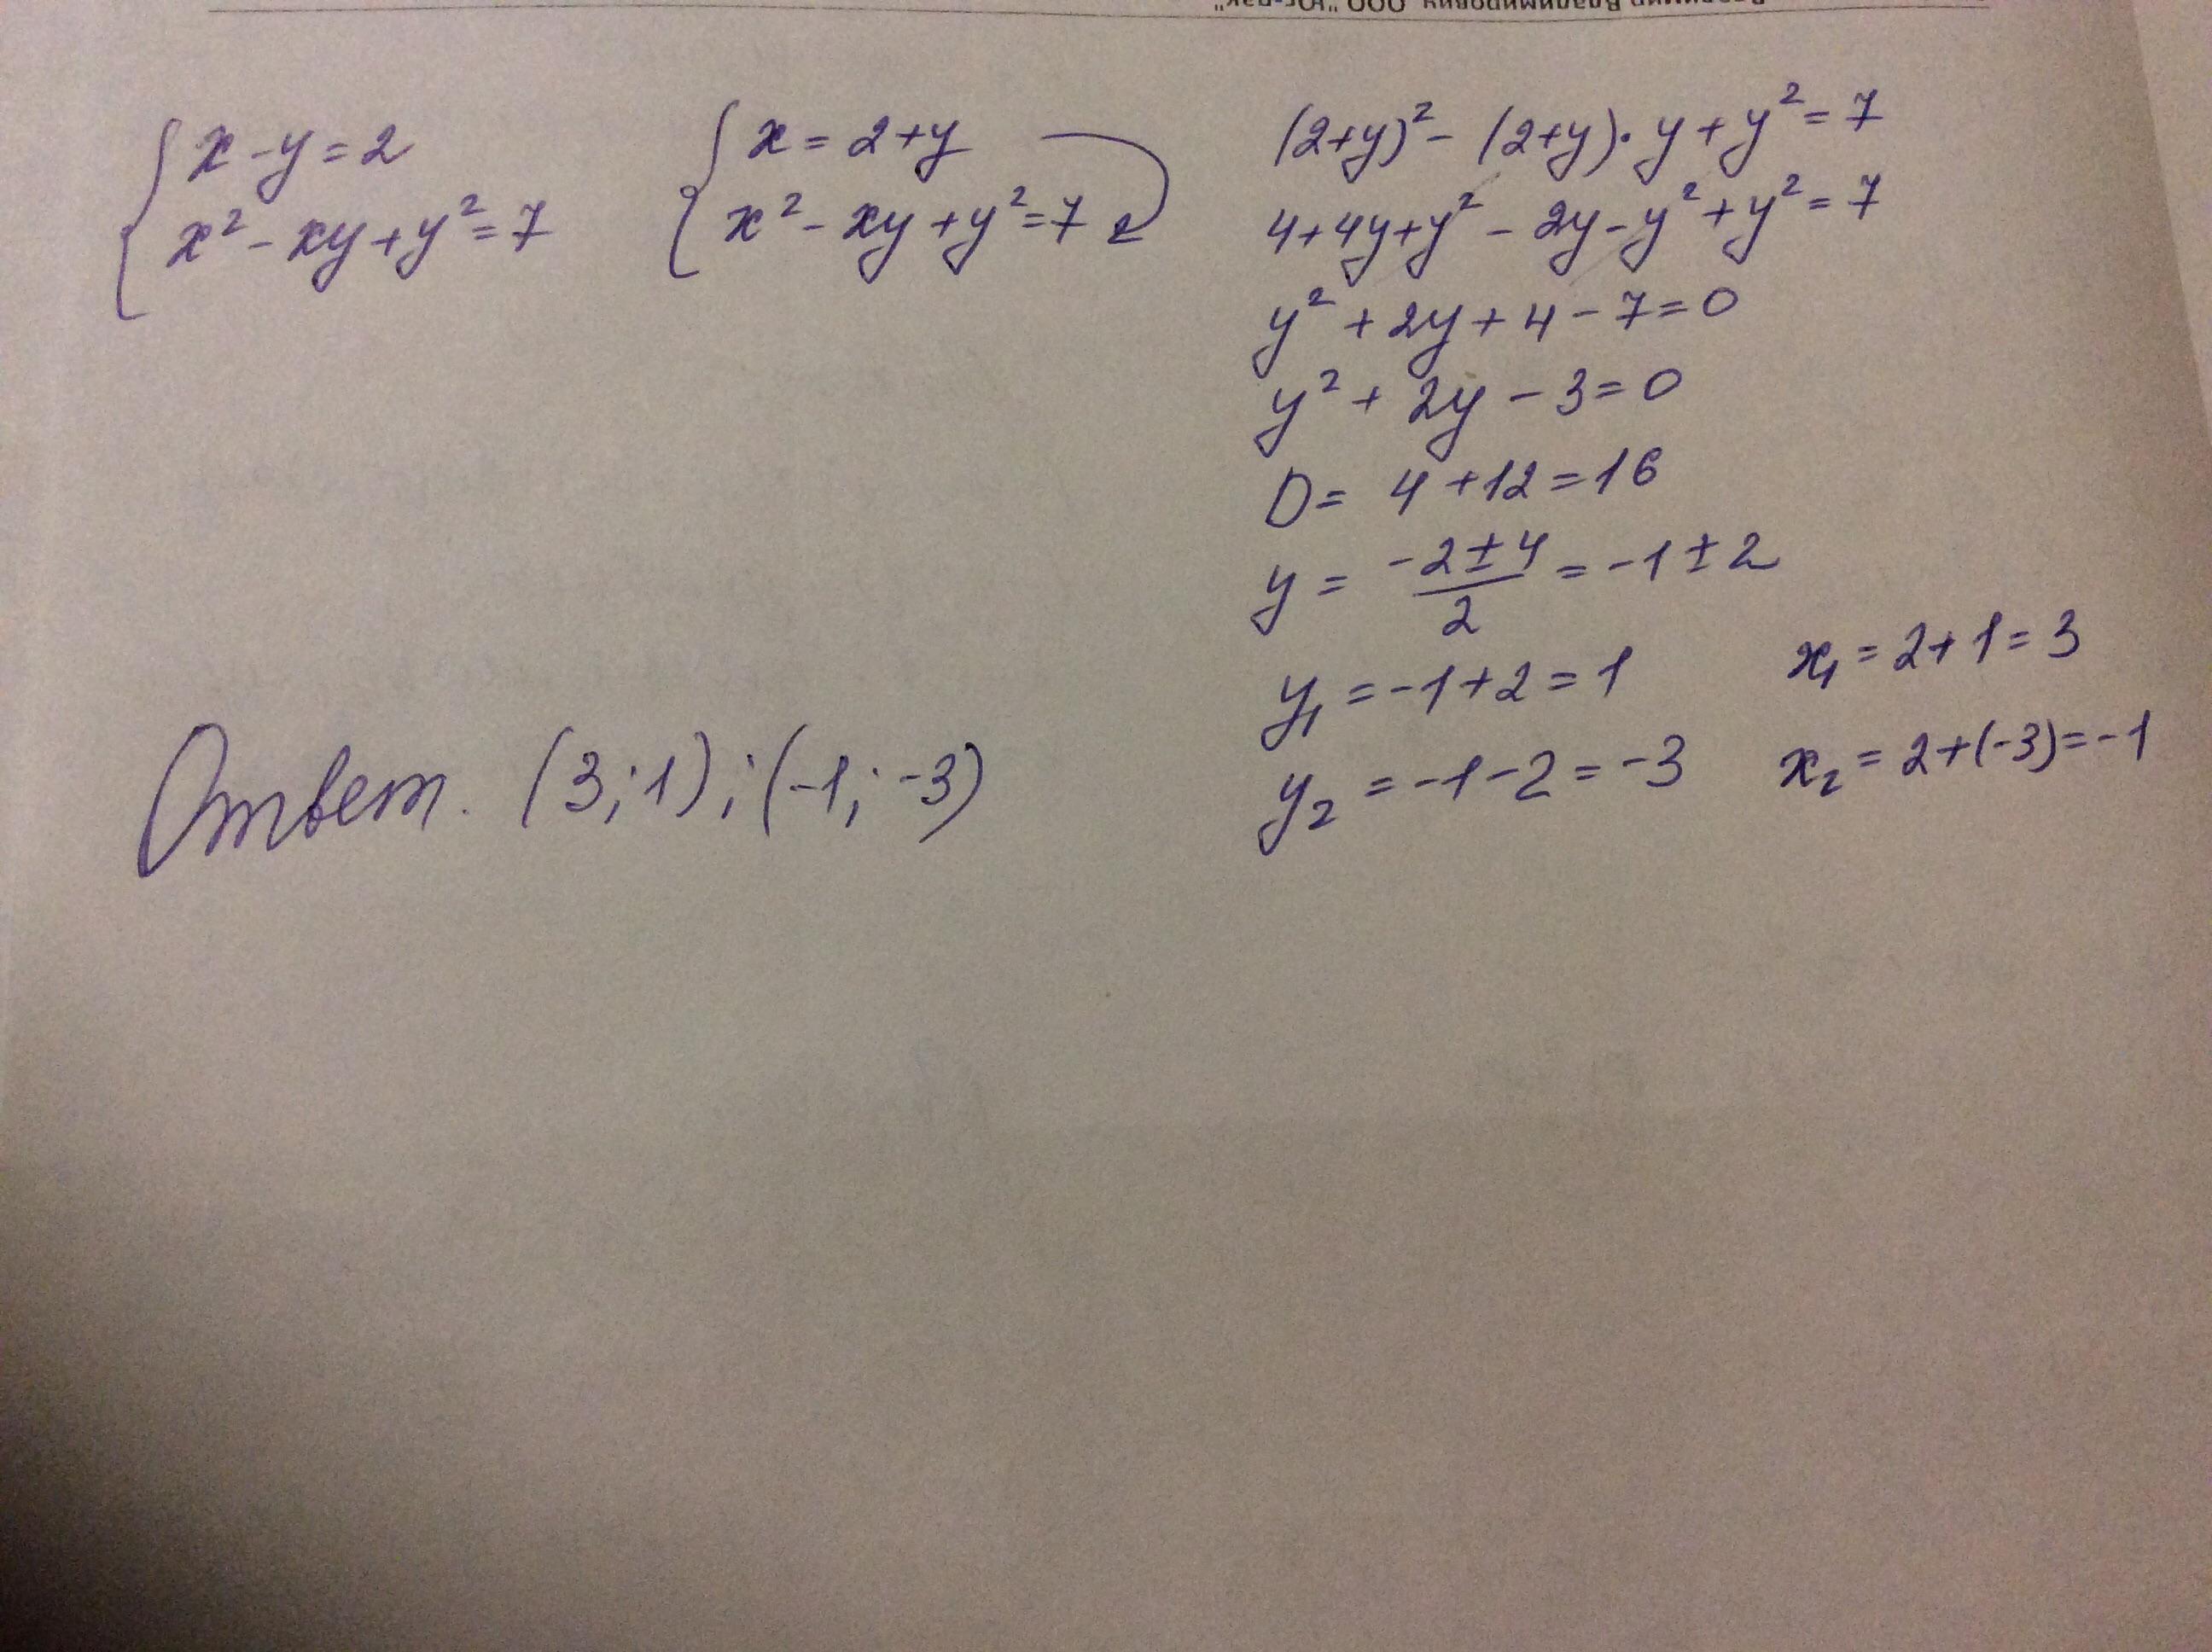 { x - y = 2
x² - xy + y² = 7
{ x = 2 + y
x² - xy + y² = 7
(2+y)² - (2+y)·y + y² = 7
4 + 4y + y² - 2y - y² + y² = 7
y² + 2y + 4 - 7 = 0
y² + 2y - 3 = 0
D = 4 + 12 = 16
y = (-2 ± 4)/2 = -1 ± 2
y₁ = -1 + 2 = 1 x₁ = 2 + 1 = 3
y₂ = -1 - 2 = -3 x₂ = 2 + (-3) = -1
Ответ. (3; 1); (-1; -3)